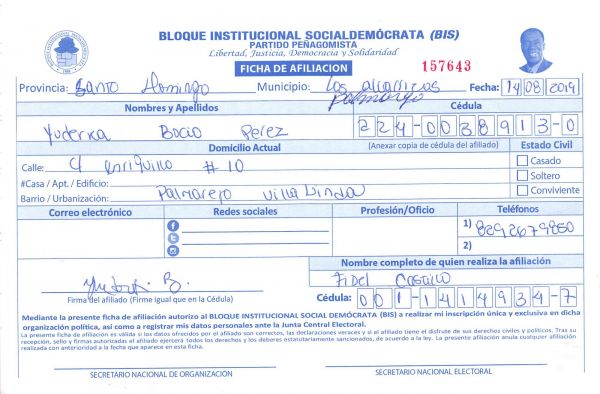 BLOQUE INSTITUCIONAL SOCIALDEMÓCRATA (BIS)
PARTIDO PEÑAGOMISTA
Libertad, Justicia, Democracia y Solidaridad
FICHA DE AFILIACION
157643
Provincia: Santo Domingo Municipio: Los alcarrizos Fecha: 14/08/2019
Palmarejo
Nombres y Apellidos Cédula
Yuderka Bocio Perez 224-0038913-0
Domicilio Actual (Anexar copia de cédula del afiliado) Estado Civil
Calle: C/ enriquillo #10 Casado
#Casa / Apt. / Edificio: Soltero
Barrio / Urbanización: Palmarejo Villa Linda Conviviente
Correo electrónico Redes sociales Profesión/Oficio Teléfonos
1) 8292679850
2)
Nombre completo de quien realiza la afiliación
Fidel Castillo
Firma del afiliado (Firme igual que en la Cédula)
Cédula: 001-1414934-7
Mediante la presente ficha de afiliación autorizo al BLOQUE INSTITUCIONAL SOCIAL DEMÓCRATA (BIS) a realizar mi inscripción única y exclusiva en dicha
organización política, así como a registrar mis datos personales ante la Junta Central Electoral.
La presente ficha de afiliación es válida si los datos ofrecidos por el afiliado son correctos, las declaraciones veraces y si el afiliado tiene el disfrute de sus derechos civiles y políticos. Tras su
recepción, sello y firmas autorizadas el afiliado ejercerá todos los derechos y los deberes estatutariamente sancionados, de acuerdo a la ley. La presente afiliación anula cualquier afiliación
realizada con anterioridad a la fecha que aparece en esta ficha.
SECRETARIO NACIONAL DE ORGANIZACIÓN SECRETARIO NACIONAL ELECTORAL